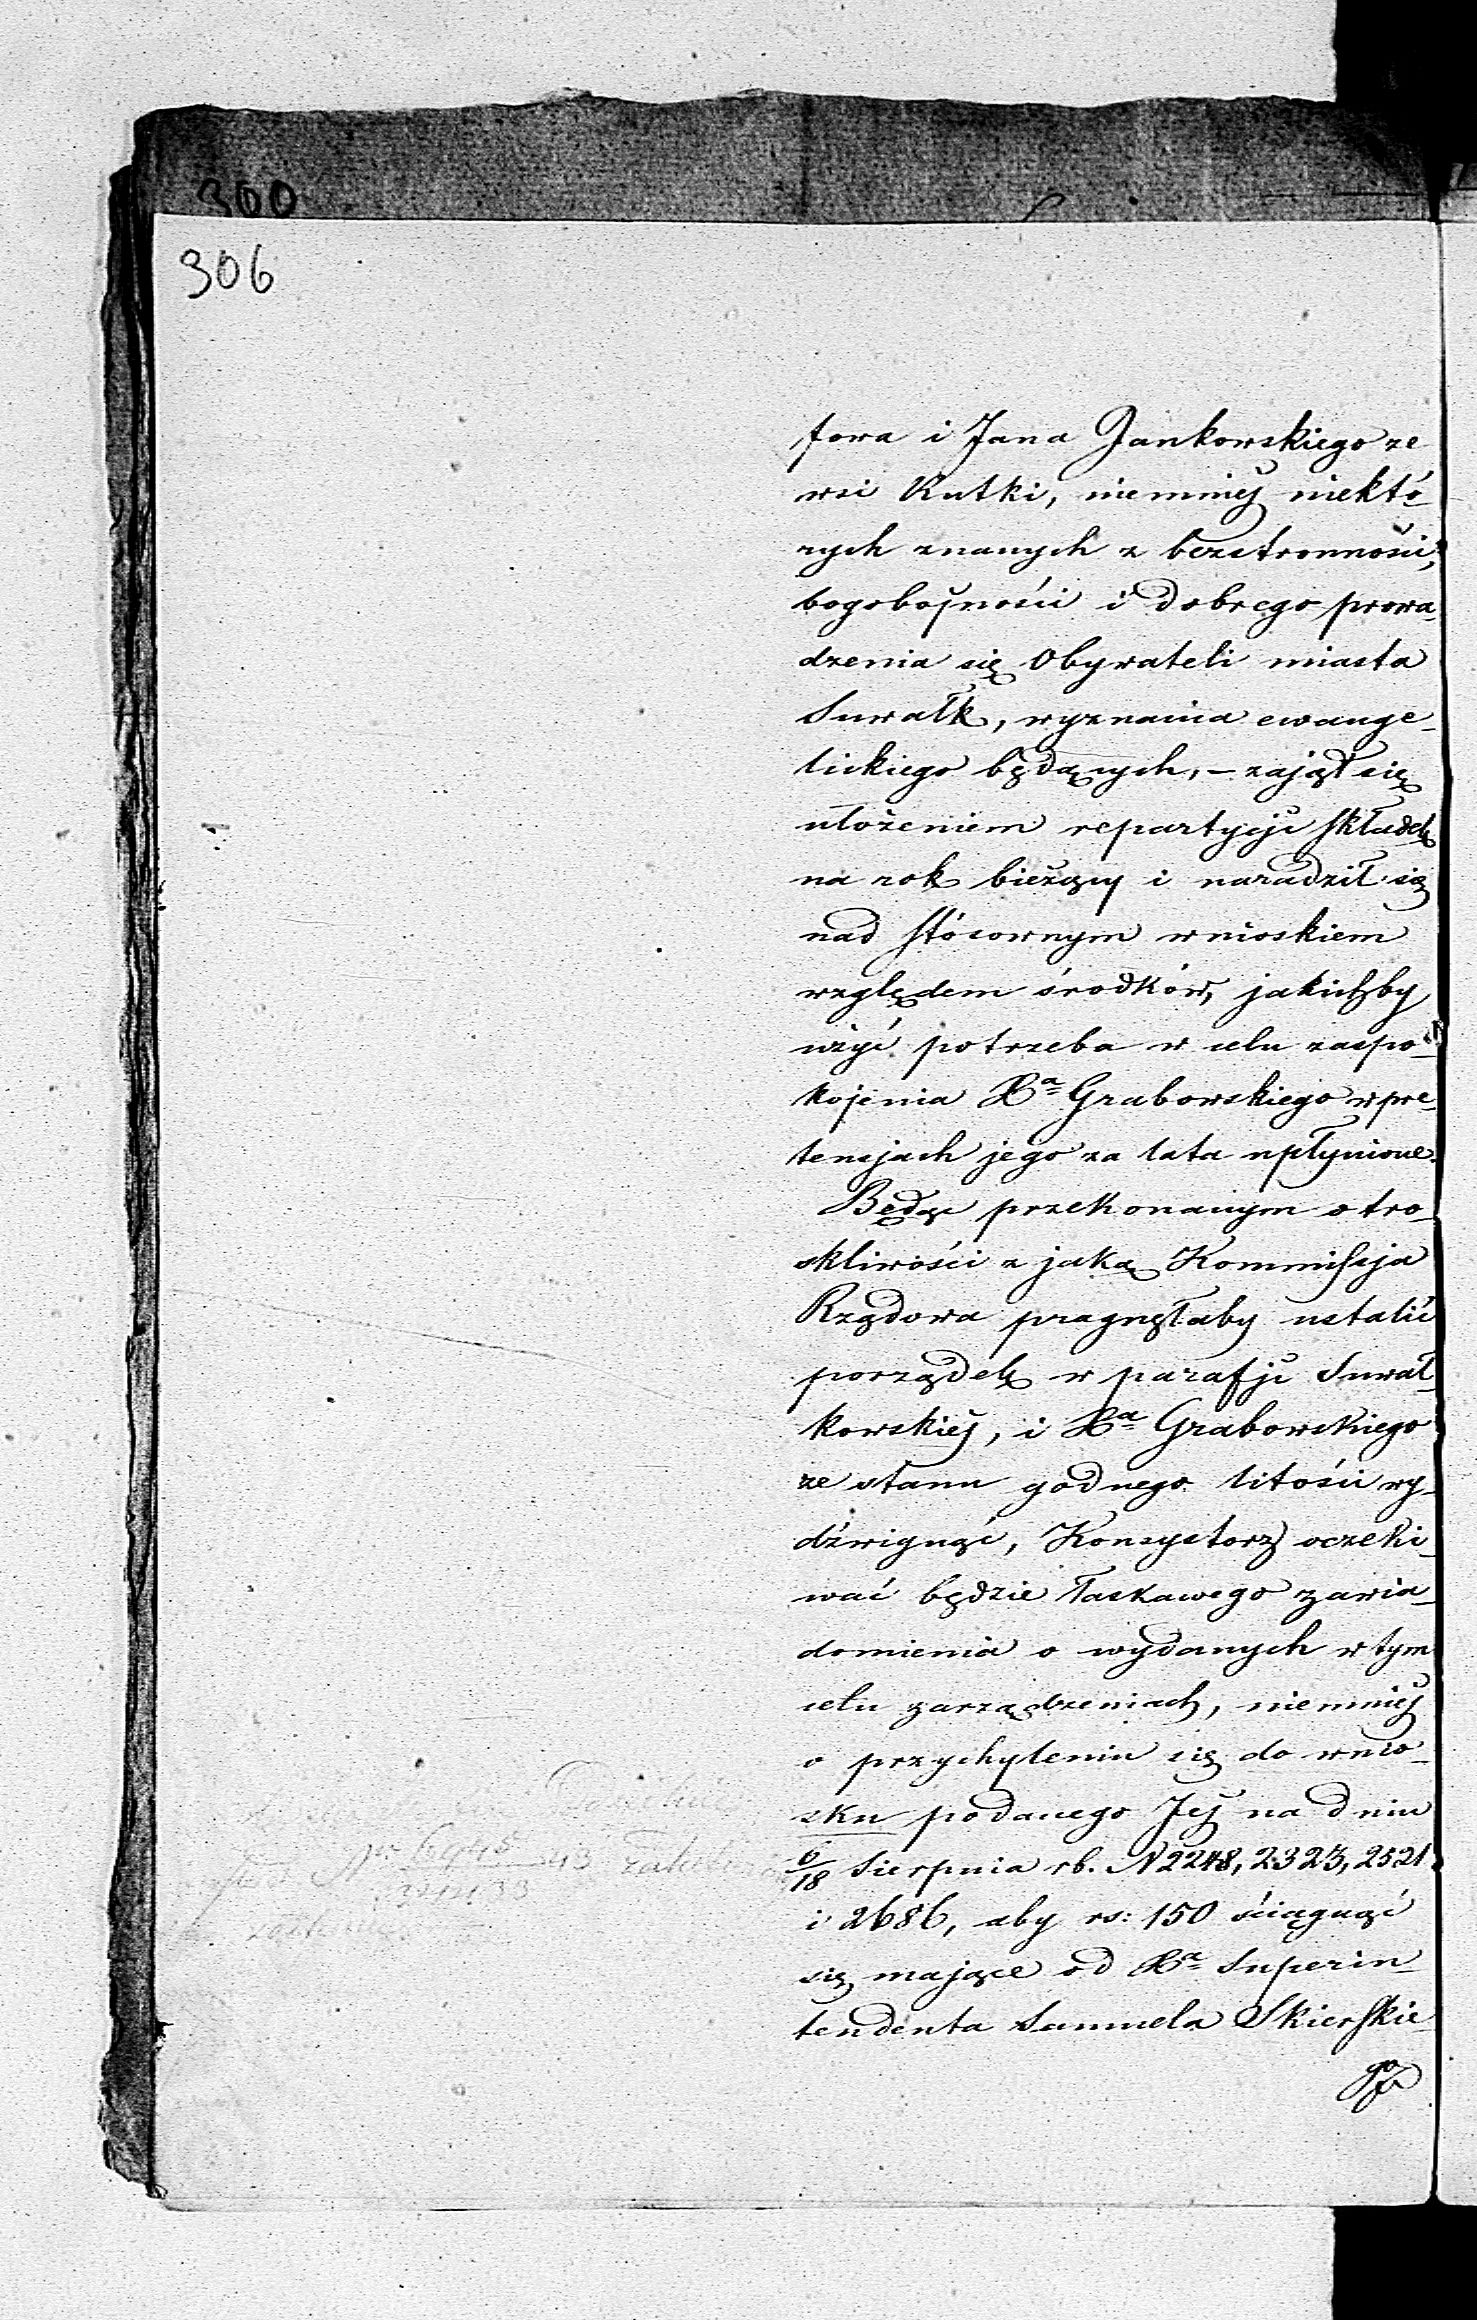 300
306
fowa i Jana Jankowskiego ze
wsi Kutki, niemniéj niektó-
rych znanych z bezstronności,
bogobojności i dobrego prowa-
dzenia się Obywateli miasta
Suwałk, wyznania ewange-
lickiego będących, – zajął się
ułożeniem repartycji składek
na rok bieżący i naradził się
nad stósownym wnioskiem
względem środków, jakichby
użyć potrzeba w celu zaspo-
kojenia Xa Grabowskiego w pre-
tensjach jego za lata upłynione.
Będąc przekonanym o tro-
skliwości z jaką Kommissja
Rządowa pragnęłaby ustalić
porządek w parafji Suwał-
kowskiéj, i Xa Grabowskiego
ze stanu godnego litości wy-
dźwignąć, Konsystorz oczeki-
wać będzie łaskawego zawia-
domienia o wydanych w tym
celu zarządzeniach, niemniéj
o przychyleniu się do wnio-
sku podanego Jéj na dniu
6/18 Sierpnia rb. N 2248, 2323, 2521
i 2686, aby rs: 150 ściągnąć
się mające od Xa Superin-
tendenta Samuela Skierskie-
go